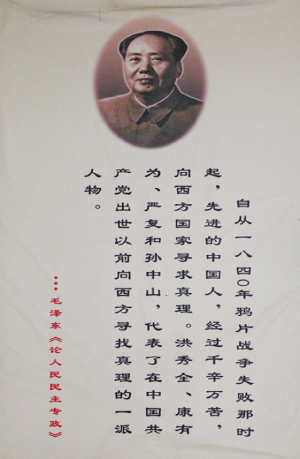 自从一八四〇年鸦片战争失败那时
起，先进的中国人，经过千辛万苦，
向西方国家寻求真理。洪秀全、康有
为、严复和孙中山，代表了在中国共
产党出世以前向西方寻找真理的一派
人物。
•••毛泽东《论人民民主专政》